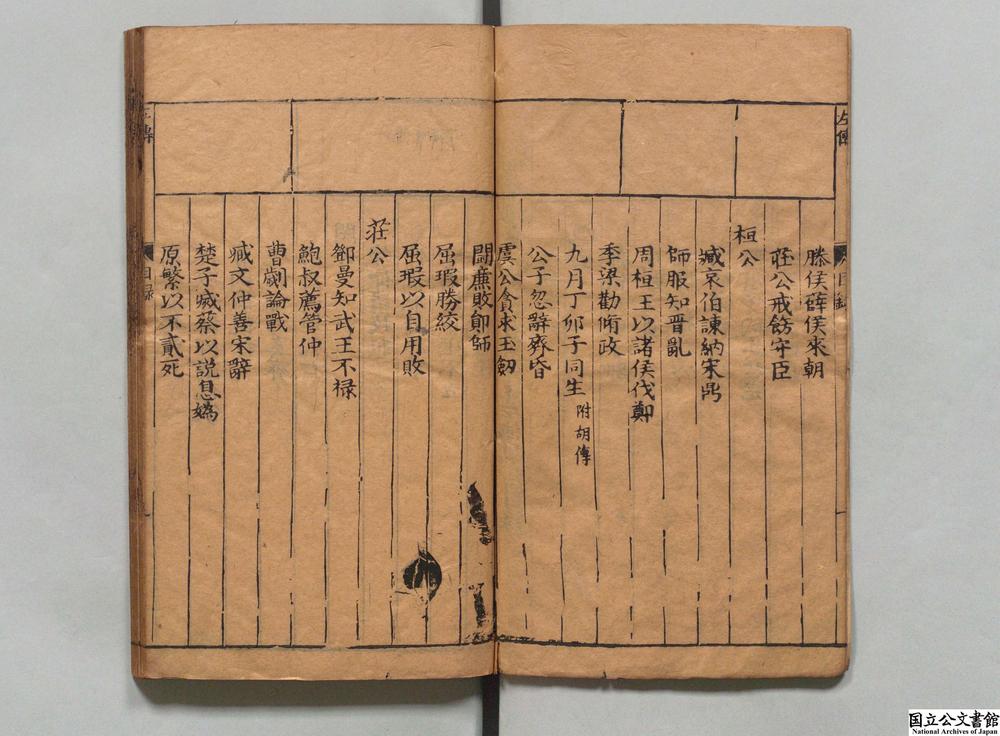 左傳
目錄
滕侯薛侯來朝
莊公戒飭守臣
桓公
臧哀伯諫納宋鼎
師服知晋亂
周桓王以諸侯伐鄭
季梁勸脩政
九月丁卯子同生 附胡傳
公子忽辭齊昏
虞公貪求玉劔
鬪廉敗鄖師
屈瑕勝絞
屈瑕以自用敗
莊公
鄧曼知武王不禄
鮑叔薦管仲
曹劌論戰
臧文仲善宋辭
楚子滅蔡以說息嬀
原繁以不貳死
左傳
目錄
国立公文書館
National Archives of Japan